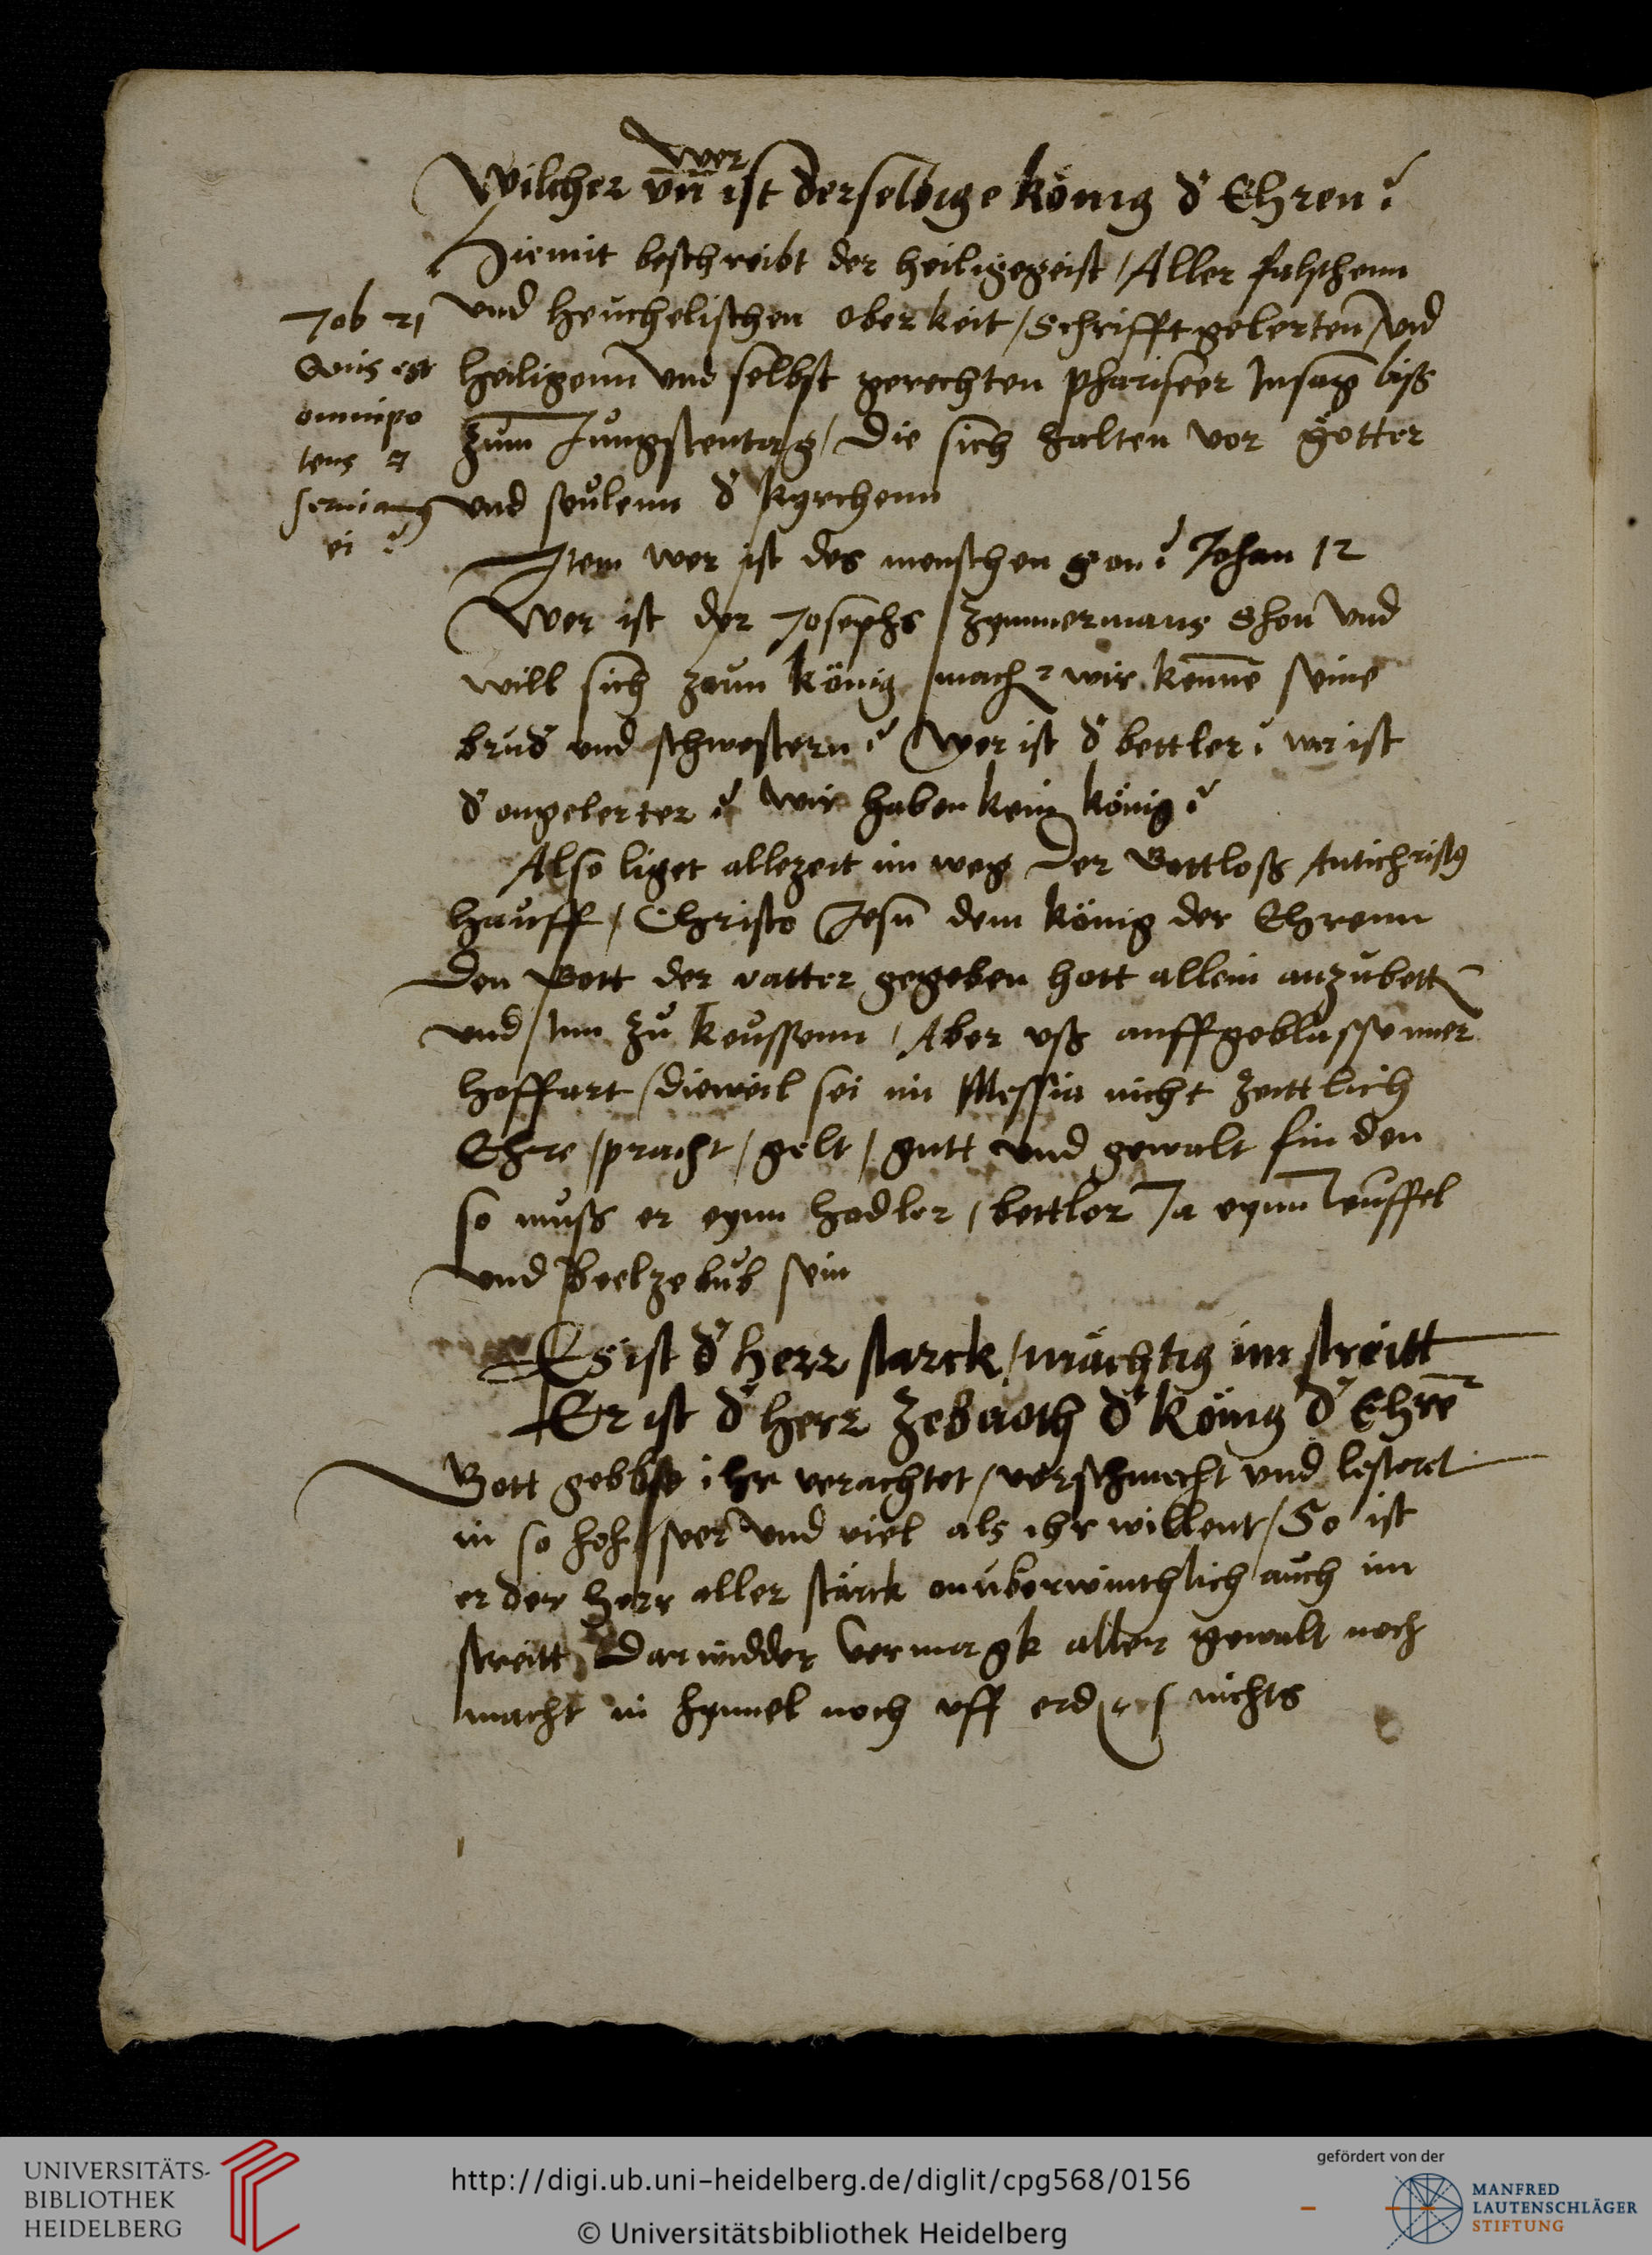 wer
Wilcher vn̄ ist derselbige könig d' Ehren?
Hiemit beschreibt der heiligegeist / Aller falschenn
und heuchelischen oberkeit / Schrifftgelerten / und
heiligenn und selbst gerechten phariseer Insag biß
zum Jungstentag / Die sich halten vor götter
und seulenn d' kyrchenn
Job 21
Quis est
omnipo
tens ꝗ
seruiamꝰ
ei ?
Item wer ist des menschen son? Johan 12
Wer ist der Josephs / zymmermans Shon und
will sich zum könig mach wir kenne seine
brud' und schwestern? Wer ist d' bettler? wer ist
d' ongelerter? Wir haben kein könig?
Also liget allezeit im weg Der Gottloß Antichristꝰ
hauff / Christo Jesu dem könig der Ehrenn
Den Gott der vatter gegeben hott allein anzubett
und Inn zu keussenn / Aber uß auffgeblassenner
hoffart / dieweil sei in Messia nicht zeittlich
Ehre / pracht / gelt / gutt und gewalt finden
so muß er eynn hodler / bettler Ja eynn teuffel
und Beelzebub sein
Es ist d' herr starck / mächtig im streitt
Er ist d' herr Zebaoth d' könig d' Ehrē
Gott gebbe ihr verachtet / verschmecht und lesteret
in so hoh / ser und viel als ihr willent / So ist
er der herr aller stärck onüberwinthlich auch im
streitt Darwidder vermagk aller gewalt noch
macht in hymel noch uff erd nichts
UNIVERSITÄTS-
BIBLIOTHEK
HEIDELBERG
http://digi.ub.uni-heidelberg.de/diglit/cpg568/0156
© Universitätsbibliothek Heidelberg
gefördert von der
MANFRED
LAUTENSCHLÄGER
STIFTUNG